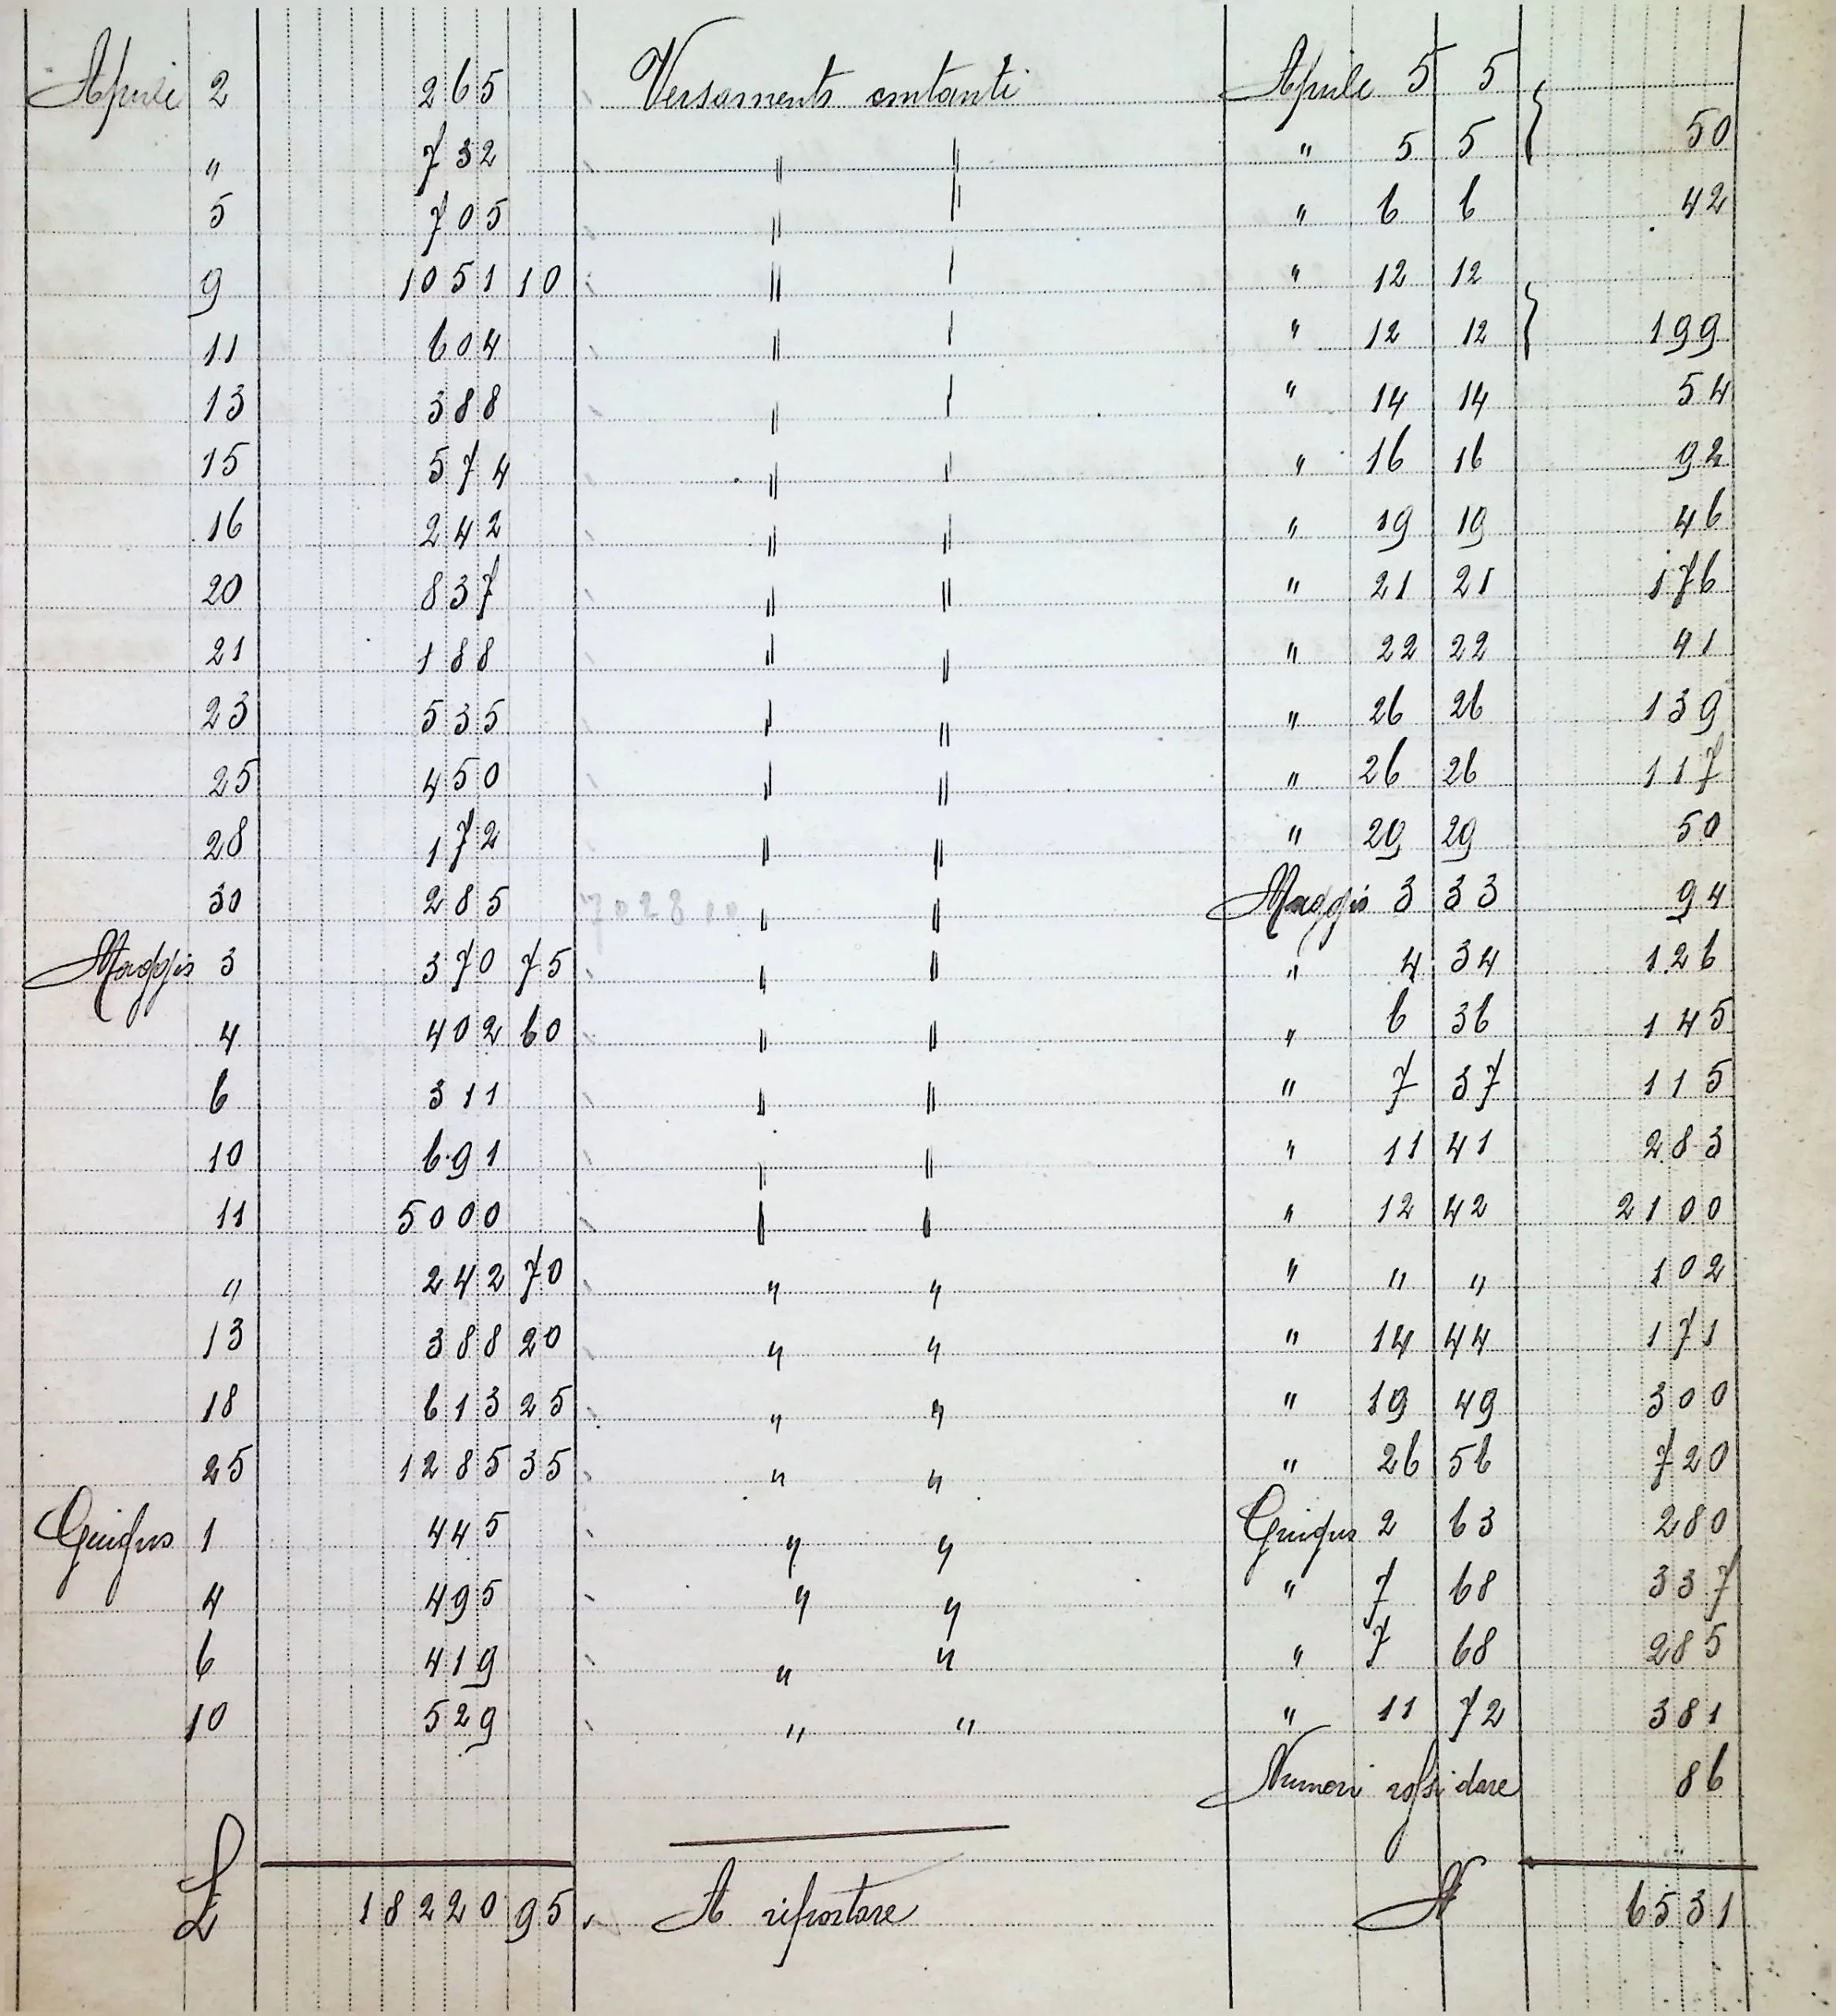 Aprile 2 265 Versamento contanti Aprile 5 5
" 732 " " " 5 5 } 50
5 705 " " " 6 6 42
9 1051 10 " " " 12 12
11 604 " " " 12 12 } 199
13 388 " " " 14 14 54
15 574 " " " 16 16 92
16 242 " " " 19 19 46
20 837 " " " 21 21 176
21 188 " " " 22 22 41
23 535 " " " 26 26 139
25 450 " " " 26 26 117
28 172 " " " 29 29 50
30 285 7028 10 " " Maggio 3 33 94
Maggio 3 370 75 " " " 4 34 126
4 402 60 " " " 6 36 145
6 311 " " " 7 37 115
10 691 " " " 11 41 283
11 5000 " " " 12 42 2100
" 242 70 " " " " " 102
13 388 20 " " " 14 44 171
18 613 25 " " " 19 49 300
25 1285 35 " " " 26 56 720
Giugno 1 445 " " Giugno 2 63 280
4 495 " " " 7 68 337
6 419 " " " 7 68 285
10 529 " " " 11 72 381
Numeri rossi dare 86
£ 18220 95 A riportare N 6531